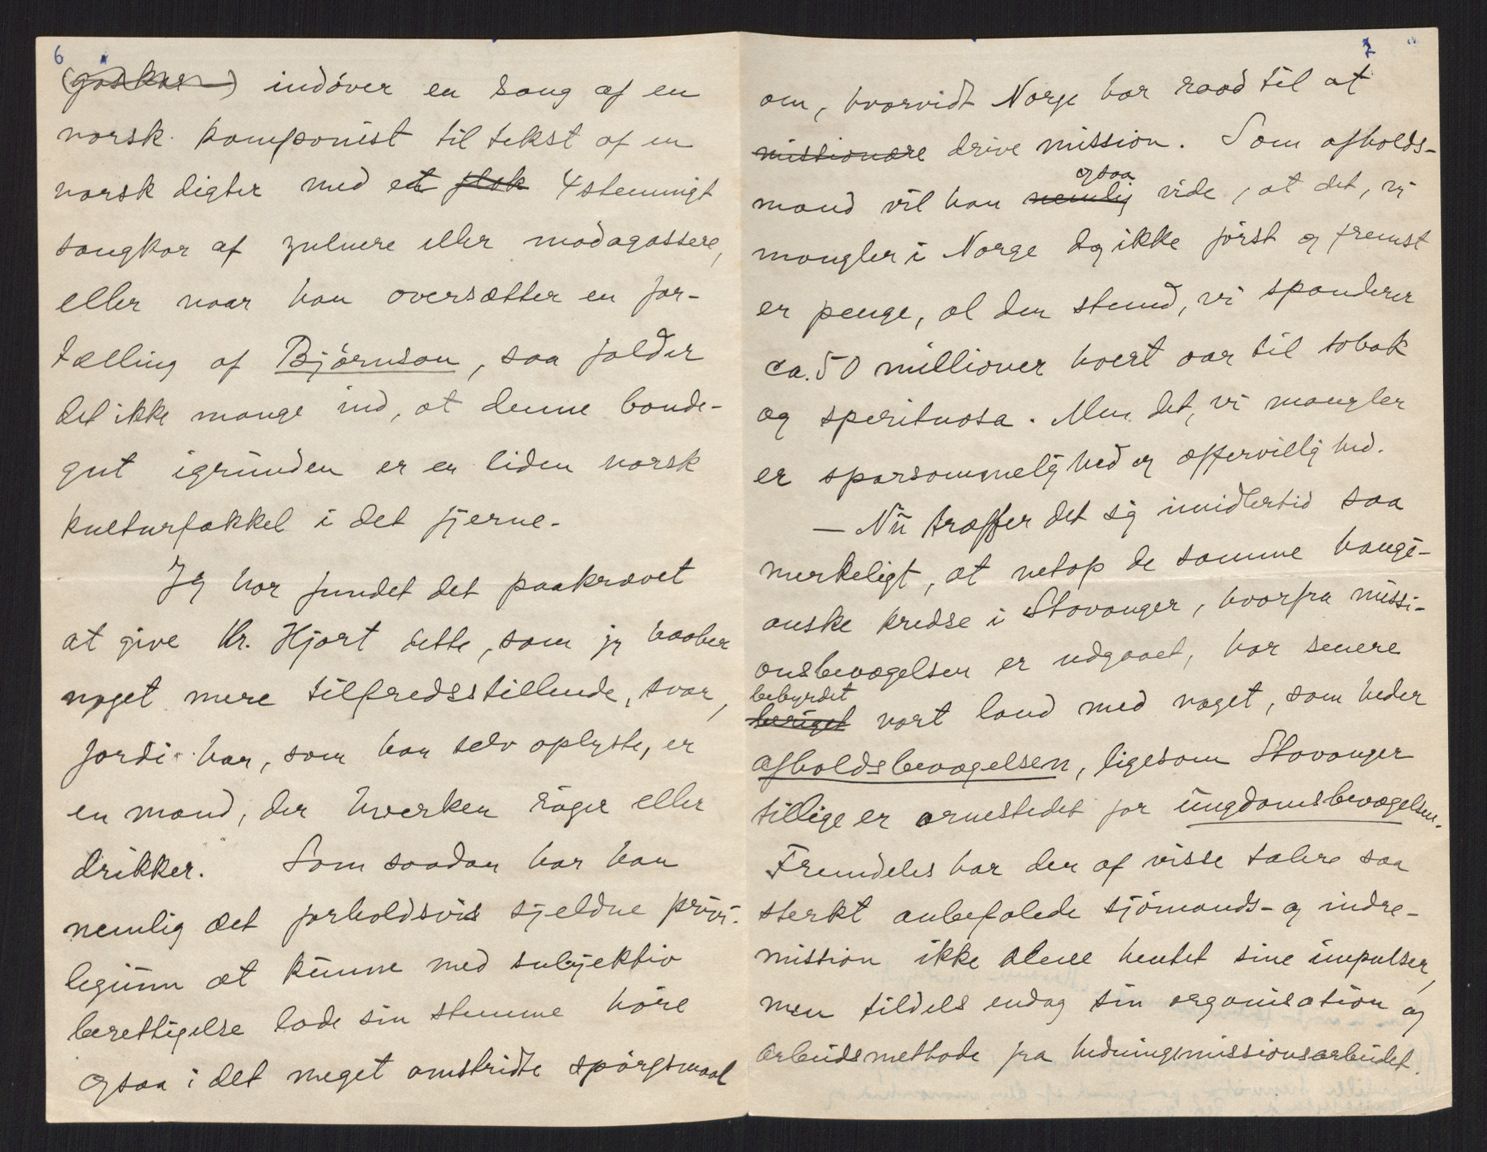 6
indöver en sang af en
norsk komponist til tekst af en
norsk digter med et flok 4stemmigt
sangkor af zuluere eller madagassere,
eller naar han oversætter en for-
tælling af Björnson, saa falder
det ikke mange ind, at denne bonde-
gut igrunden er en liden norsk
kulturfakkel i det fjerne.
Jeg har fundet det paakrævet
at give Hr. Hjort dette, som jeg haaber
noget mere tilfredsstillende, svar,
fordi han, som han selv oplyste, er
en mand, der hverken röger eller
drikker. Som saadan har han
nemlig det forholdsvis sjeldne privi-
legium at kunne med subjektiv
berettigelse lade sin stemme höre
ogsaa i det meget omstridte spörgsmaal
7
om, hvorvidt Norge har raad til at
missionære drive mission. Som afholds-
ogsaa
mand vil han nemlig vide, at det, vi
mangler i Norge dog ikke först og fremst
er penge, al den stund, vi spanderer
ca. 50 millioner hvert aar til tobak
og spirituosa. Men det, vi mangler
er sparsommelighed og offervillighed.
— Nu træffer det sig imidlertid saa
merkeligt, at netop de samme haugi-
anske kredse i Stavanger, hvorfra missi-
onsbevægelsen er udgaaet, har senere
bebyrdet
beriget vort land med noget, som heder
afholdsbevægelsen, ligesom Stavanger
tillige er arnestedet for ungdomsbevægelsen.
Fremdeles har den af visse talere saa
sterkt anbefalede sjömands- og indre-
mission ikke alene hentet sine impulser,
men tildels endog sin organisation og
arbeidsmethode fra hedningemissionsarbeidet.